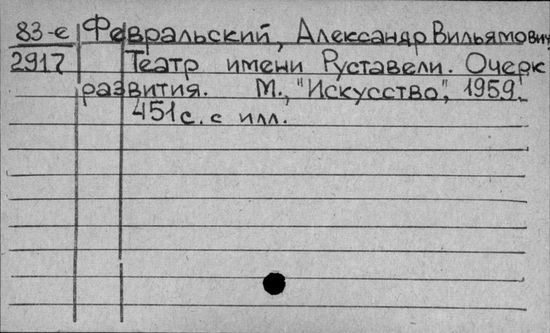 83-е Февральский, Александр Вильямович
2917 Театр имени Руставели. Очерк
развития. М., "Искусство", 1959.
451с. с илл.